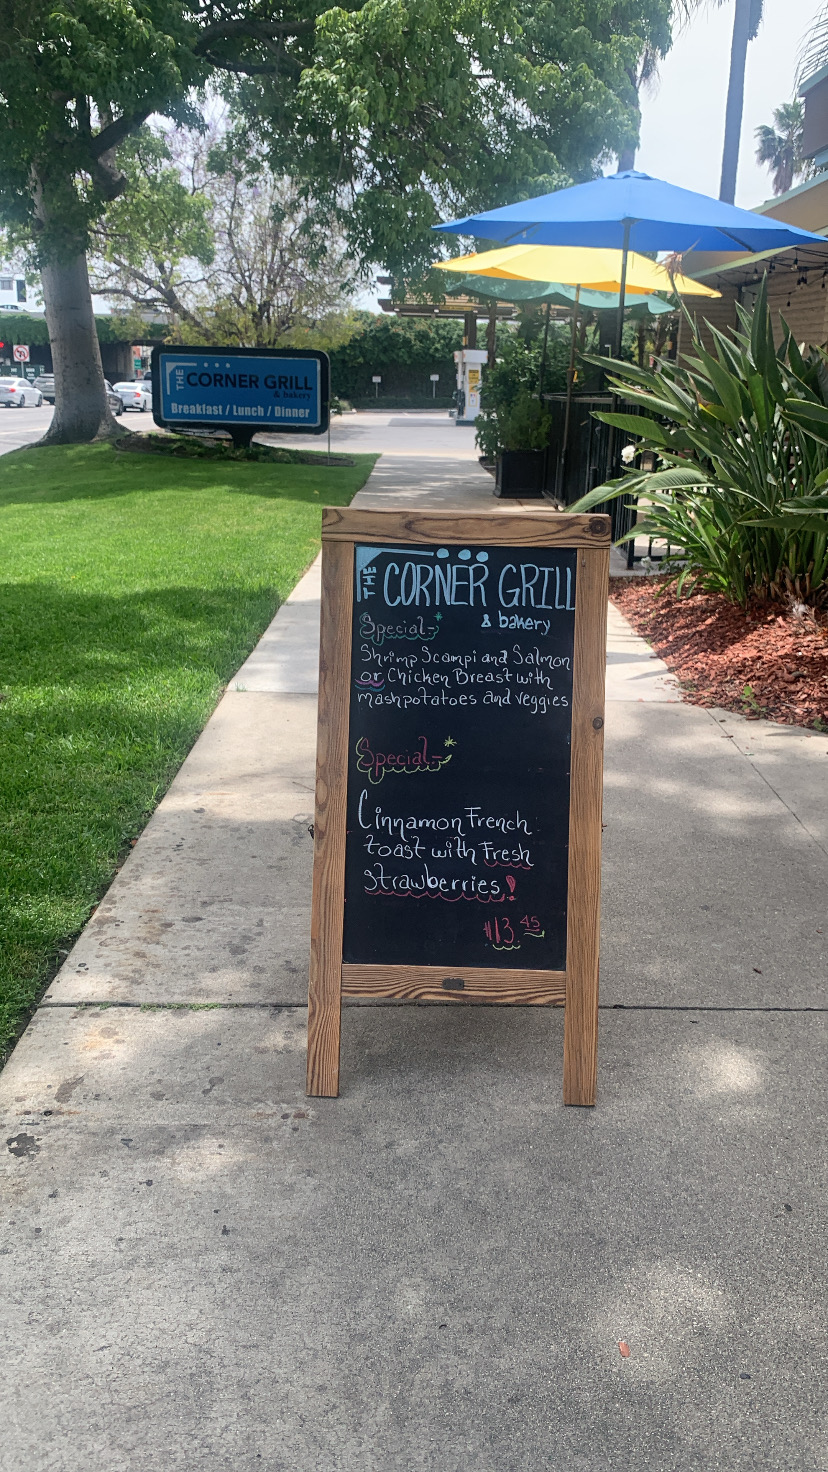 THE CORNER GRILL
& bakery
Breakfast / Lunch / Dinner
THE CORNER GRILL
& bakery
Special-
Shrimp Scampi and Salmon
or Chicken Breast with
mashpotatoes and veggies
Special-
Cinnamon French
toast with Fresh
strawberries!
$13.45